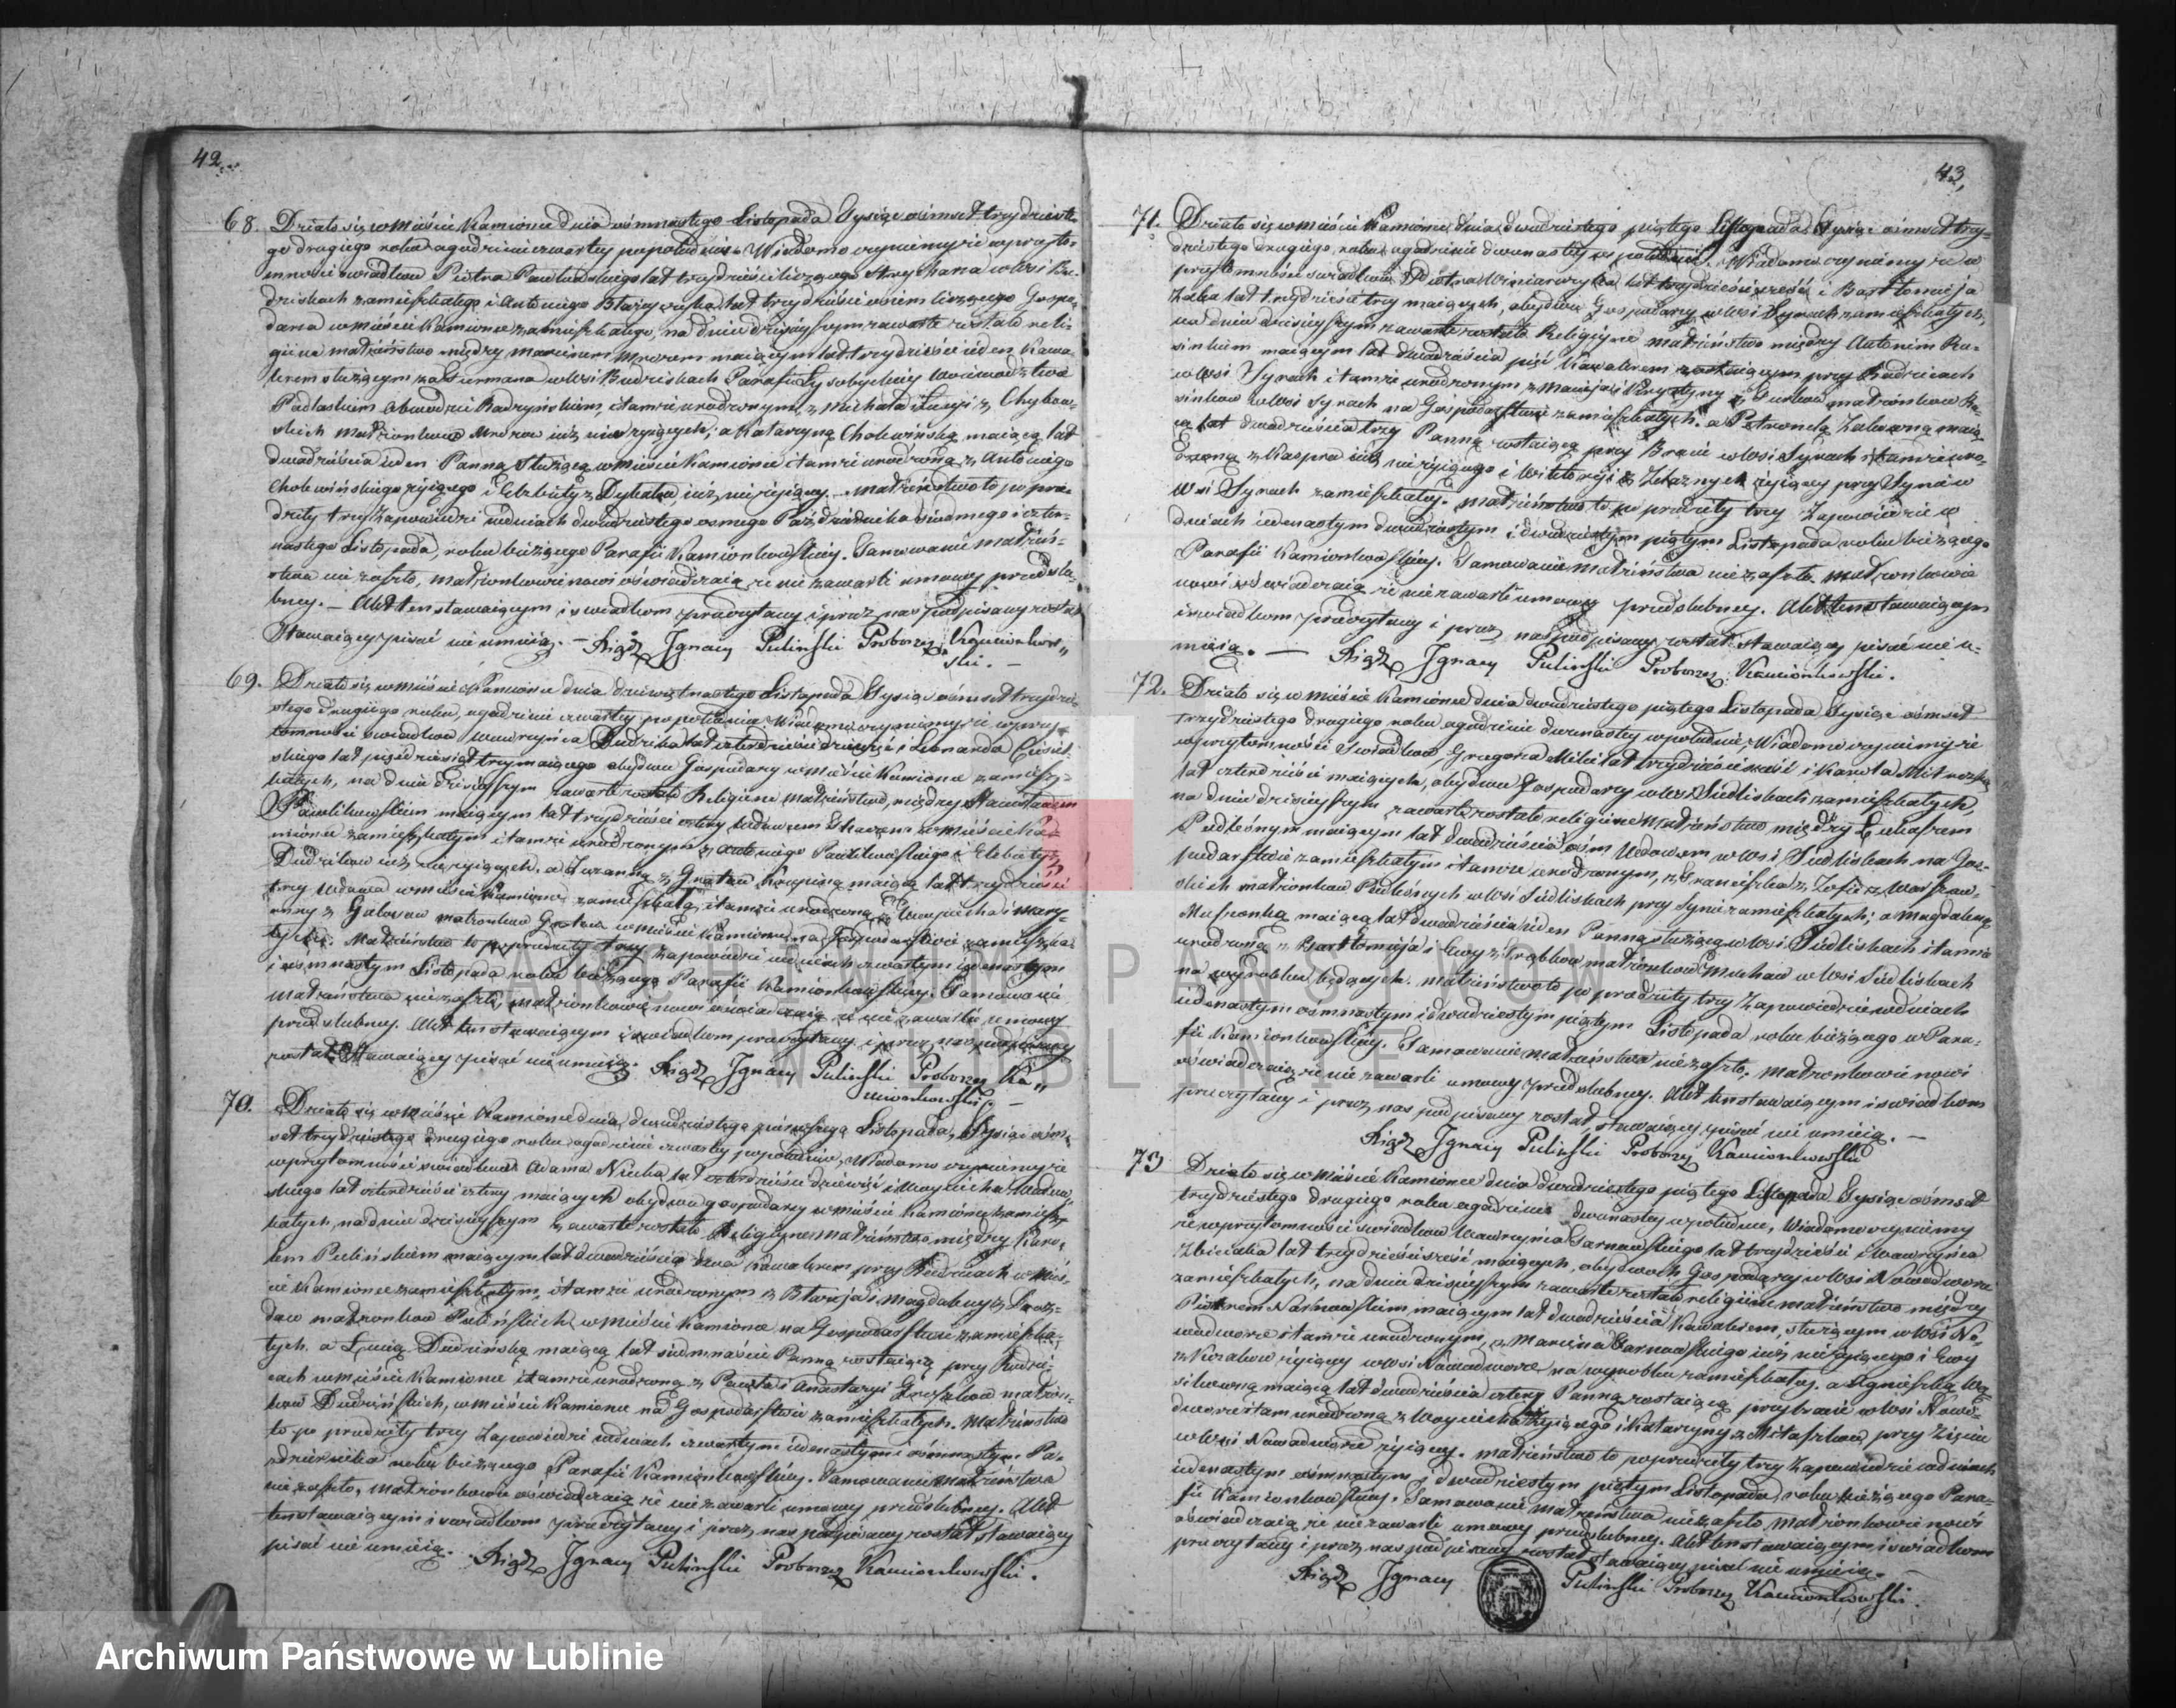 42.
68. Działo się w Mieście Kamionce dnia ośmnastego Listopada Tysiąc ośmset trzydzieste-
go drugiego roku o godzinie czwartey popołudniu. Wiadomo czynimy że w przyto-
mności świadków Piotra Pawłowskiego lat trzydzieści liczącego Strycharza w Wsi Bu-
dziskach zamieszkałego i Antoniego Błaszczyka lat trzydzieści ośiem liczącego Gospo-
darza w mieście Kamionce zamieszkałego, na dniu dzisieyszym zawarte zostało reli-
giine małżeństwo między Marcinem Mrozem maiącym lat trzydzieści ieden Kawa-
lerem służącym za Furmana w Wsi Budziskach Parafii Woiewództwie
Podlaskim Obwodzie Radzyńskim, i tamże urodzonym z Michała i Łucyi z Chybow-
skich małżonków Mrozów iuż nie żyiących; a Katarzyną Cholewińską maiącą lat
dwadzieścia ieden Panną Służącą w mieście Kamionce i tamże urodzoną z Antoniego
Cholewińskiego żyiącego i Elżbiety z iuż nie żyiącey. Małżeństwo to po prze-
dziły trzy Zapowiedzi w dniach dwudziestego osmego Października siudmego i czter-
nastego Listopada, roku bieżącego Parafii Kamionkowskiey. Tamowanie małżeń-
stwa nie zaszło, małżonkowie nowi oświadczaią że nie zawarli umowy przedślu-
bney. — Akt ten stawaiącym i świadkom przeczytany i przez nas podpisany został
Stawaiący pisać nie umieią. — Xiądz Ignacy Puliński Proboszcz Kamionkow„
ski. —
69. Działo się w mieście Kamionce dnia dziewiętnastego Listopada Tysiąc ośmset trzydzie-
stego drugiego roku, o godzinie czwartey po południu Wiadomo czynimy że w przy-
tomności świadków Wawrzyńca Dudzika lat czterdzieści dziewięć i Leonarda
skiego lat pięćdziesiąt trzy maiącego obydwu Gospodarzy w mieście Kamionce zamiesz-
kałych, na dniu dzisieyszym zawarte zostało Religiine Małżeństwo, między Stanisławem
Pawlikowskim maiącym lat trzydzieści cztery wdowcem w mieście Ka-
mionce zamieszkałym i tamże urodzonym z Antoniego Pawlikowskiego i Elżbiety z
Dudzików iuż nie żyiących, a Zuzanną z maiącą lat trzydzieści
trzy Wdową w mieście Kamionce zamieszkałą, i tamże urodzoną z Woyciecha i Mary-
anny z małżonków w mieście Kamionce na Gospodarstwie zamieszka-
łych. Małżeństwo to poprzedziły trzy zapowiedzi w dniach czwartym iedenastym
i ośmnastym Listopada roku bieżącego Parafii Kamionkowskiey. Tamowanie
Małżeństwa nie zaszło, małżonkowie nowi oświadczaią że nie zawarli umowy
przedślubney. Akt ten stawaiącym i świadkom przeczytany i przez nas podpisany
został Stawaiący pisać nie umieią. Xiądz Ignacy Puliński Proboszcz Ka„
mionkowski. —
70. Działo się w Mieście Kamionce dnia dwudziestego pierwszego Listopada, Tysiąc ośm-
set trzydziestego drugiego roku o godzinie czwartey popołudniu, Wiadomo czynimy że
w przytomności świadków Adama lat czterdzieści dziewięć i Woyciecha
skiego lat czterdzieści cztery maiących obydwu gospodarzy w mieście Kamionce zamiesz-
kałych, na dniu dzisieyszym zawarte zostało Religiine małżeństwo między Karo-
lem Pulińskim maiącym lat dwadzieścia dwa Kawalerem przy Rodzicach w Mieś-
cie Kamionce zamieszkałym, i tamże urodzonym z Błażeja i Magdaleny z
małżonków Pulińskich, w mieście Kamionce na Gospodarstwie zamieszka-
łych, a Dudzińską maiącą lat siedmnaście Panną zostaiącą przy Rodzi-
cach w mieście Kamionce i tamże urodzoną z Pawła i Anastazyi małżon-
ków Dudzińskich, w mieście Kamionce na Gospodarstwie zamieszkałych. Małżeństwo
to po przedziły trzy Zapowiedzi w dniach czwartym iedenastym i ośmnastym Pa-
ździernika roku bieżącego Parafii Kamionkowskiey. Tamowanie małżeństwa
nie zaszło, małżonkowie oświadczaią że nie zawarli umowy przedślubney. Akt
ten stawaiącym i świadkom przeczytany i przez nas podpisany został stawaiący
pisać nie umieią. Xiądz Ignacy Puliński Proboszcz Kamionkowski.
43.
71. Działo się w mieście Kamionce dnia dwudziestego piątego Listopada Tysiąc ośmset trzy-
dziestego drugiego roku, o godzinie dwunastey w południe. Wiadomo czynimy że w
przytomności świadków Piotra Winiarczyka lat trzydzieści sześć i Bartłomieja
Żaka lat trzydzieści trzy maiących, obydwu Gospodarzy w Wsi Syrach zamieszkałych,
na dniu dzisieyszym zawarte zostało Religiine małżeństwo między Antonim
maiącym lat dwadzieścia pięć Kawalerem zostaiącym przy Rodzicach
w Wsi Syrach i tamże urodzonym z Macieja i Krystyny z małżonków
w Wsi Syrach na Gospodarstwie zamieszkałych: a Petronelą maią-
cą lat dwadzieścia trzy Panną zostaiącą przy Bracie w Wsi Syrach i tamże uro-
dzoną z Kaspra iuż nie żyiącego i Wiktoryi z Żelaznych żyiącey przy Synu w
Wsi Syrach zamieszkałey. Małżeństwo to po przedziły trzy Zapowiedzi w
dniach iedenastym dwudziestym i dwudziestym piątym Listopada roku bieżącego
Parafii Kamionkowskiey. Tamowanie Małżeństwa nie zaszło. Małżonkowie
nowi oświadczaią że nie zawarli umowy przedślubney. Akt ten stawaiącym
i świadkom przeczytany i przez nas podpisany został stawaiący pisać nie u-
mieią. — Xiądz Ignacy Puliński Proboszcz Kamionkowski.
72. Działo się w mieście Kamionce dnia dwudziestego piątego Listopada Tysiąc ośmset
trzydziestego drugiego roku o godzinie dwunastey w południe, Wiadomo czynimy że
w przytomności Świadków, Grzegorza lat trzydzieści sześć i Karola
lat czterdzieści maiących, obydwu Gospodarzy w Wsi Siedliskach zamieszkałych,
na dniu dzisieyszym zawarte zostało religiine Małżeństwo między Łukaszem
Podleśnym maiącym lat dwadzieścia ośm Wdowcem w Wsi Siedliskach na Gos-
podarstwie zamieszkałym i tamże urodzonym, z Franciszka z Zofii z
skich małżonków Podleśnych w Wsi Siedliskach przy Synie zamieszkałych; a Magdaleną
maiącą lat dwadzieścia ieden Panną służącą w Wsi Siedliskach i tamże
urodzoną z Bartłomieja i Ewy z małżonków w Wsi Siedliskach
na wyrobku będących. Małżeństwo to po przedziły trzy Zapowiedzi w dniach
iedenastym ośmnastym i dwudziestym piątym Listopada roku bieżącego w Para-
fii Kamionkowskiey. Tamowanie Małżeństwa nie zaszło; małżonkowie nowi
oświadczaią że nie zawarli umowy przedślubney. Akt ten stawaiącym i świadkom
przeczytany i przez nas podpisany został, stawaiący pisać nie umieią. —
Xiądz Ignacy Puliński Proboszcz Kamionkowski
73 Działo się w Mieście Kamionce dnia dwudziestego piątego Listopada Tysiąc ośmset
trzydziestego drugiego roku o godzinie dwunastey w południe, Wiadomo czynimy
że w przytomności świadków Wawrzyńca Tarnowskiego lat trzydzieści i Wawrzyńca
lat trzydzieści sześć maiących, obydwóch Gospodarzy w Wsi Nowodworze
zamieszkałych, na dniu dzisieyszym zawarte zostało religiine małżeństwo między
Piotrem Tarnowskim maiącym lat dwadzieścia Kawalerem, służącym w Wsi No-
wodworze i tamże urodzonym, z Marcina Tarnowskiego iuż nie żyiącego i Ewy
z żyiącey w Wsi Nowodworze na wyrobku zamieszkałey. a Agnieszką Wą-
sikowną maiącą lat dwadzieścia cztery Panną zostaiącą przy bracie w Wsi Nowo-
dworze i tam urodzoną z Woyciecha nie żyiącego i Katarzyny z przy Zięciu
w Wsi Nowodworze żyiącey. Małżeństwo to poprzedziły trzy Zapowiedzi w dniach
iedenastym ośmnastym i dwudziestym piątym Listopada, roku bieżącego Para-
fii Kamionkowskiey. Tamowanie Małżeństwa nie zaszło Małżonkowie nowi
oświadczaią że nie zawarli umowy przedślubney. Akt ten stawaiącym i świadkom
przeczytany i przez nas podpisany został stawaiący pisać nie umieią. —
Xiądz Ignacy Puliński Proboszcz Kamionkowski.
ARCHIWUM PAŃSTWOWE
W LUBLINIE
Archiwum Państwowe w Lublinie